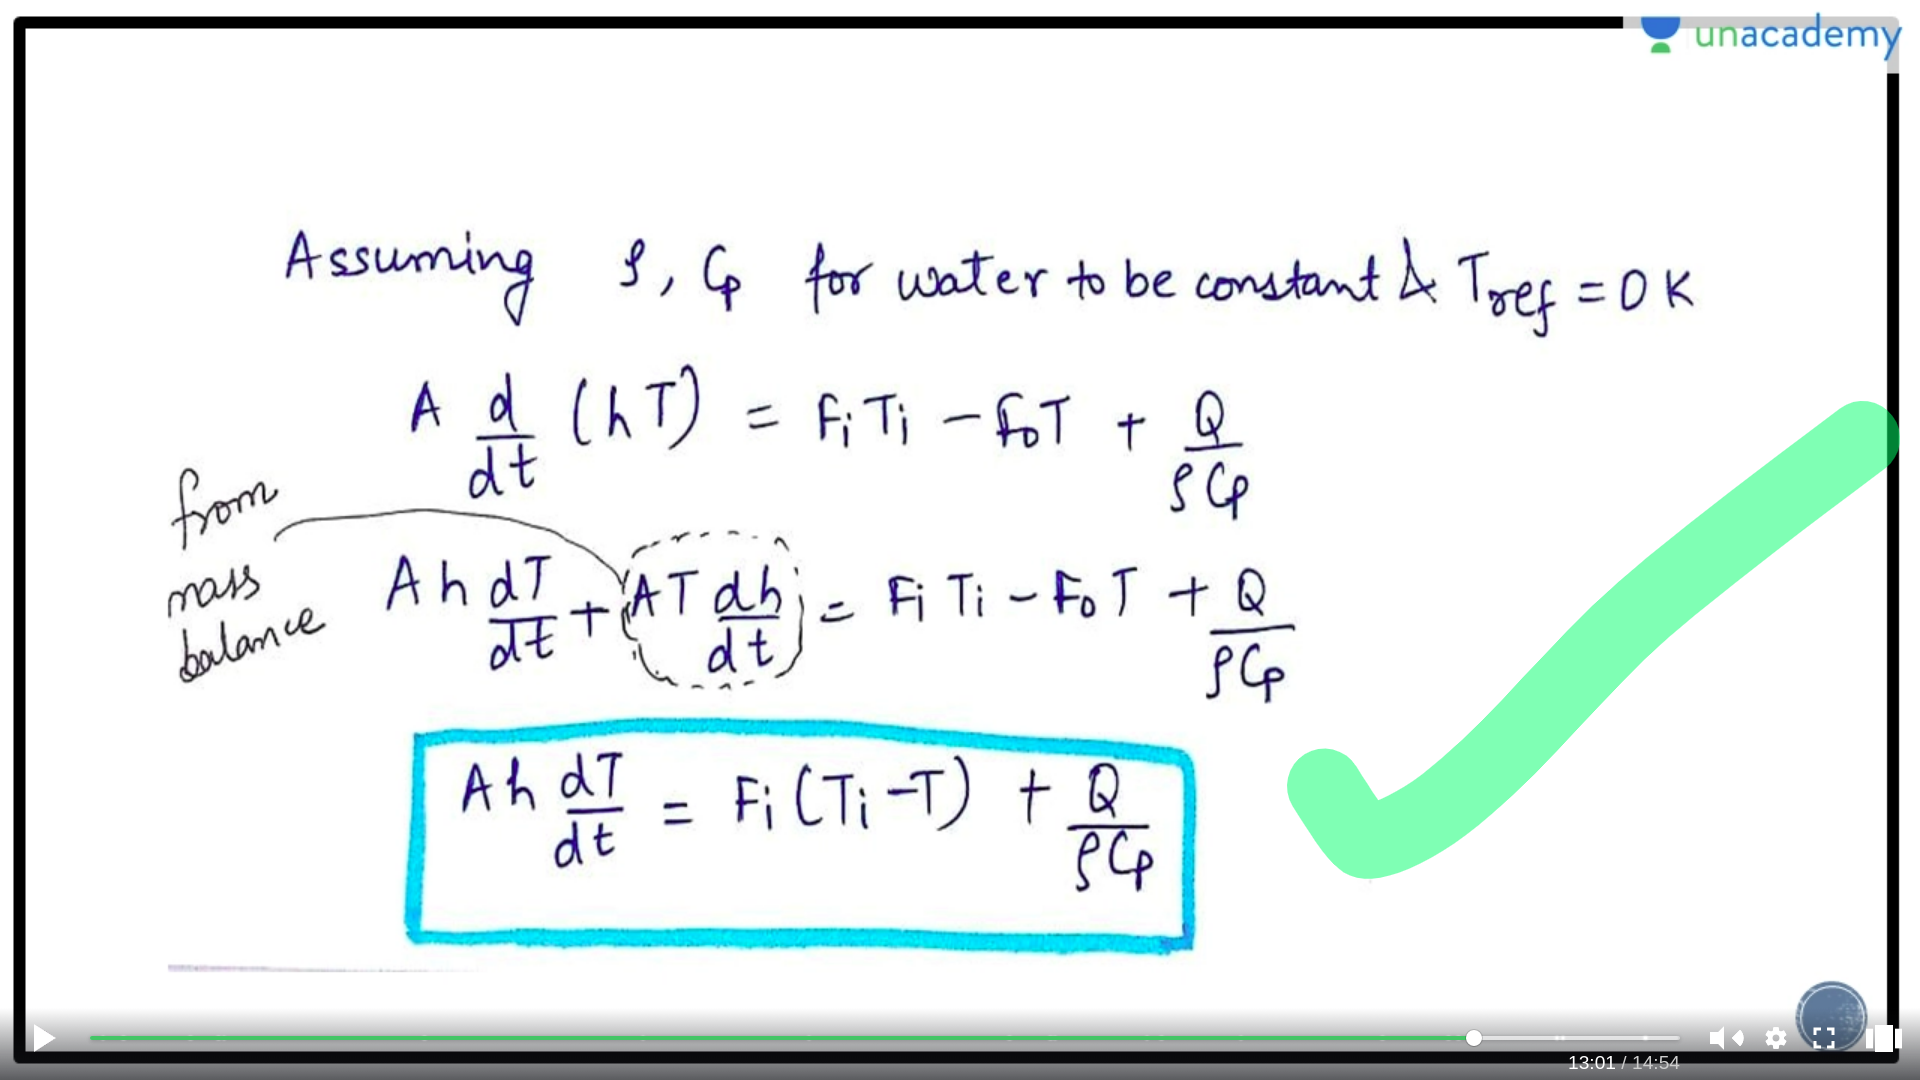 unacademy
Assuming ρ, Cp for water to be constant & Tref = 0 K
A d/dt (hT) = Fi Ti - Fo T + Q/ρCp
from
mass
balance
Ah dT/dt + AT dh/dt = Fi Ti - Fo T + Q/ρCp
Ah dT/dt = Fi (Ti - T) + Q/ρCp
13:01 / 14:54